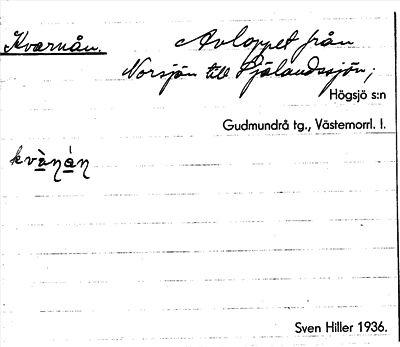 Kvarnån. Avloppet från
Norsjön till Själandssjön;
Högsjö s:n
Gudmundrå tg., Västernorrl. l.
kvà̱ŋá̱ŋ
Sven Hiller 1936.